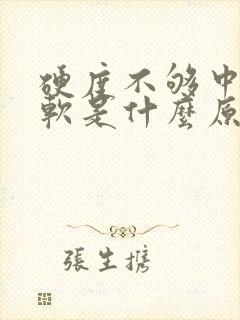 硬度不够中
軟是什麼原
張生携